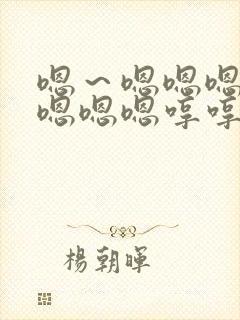 嗯～嗯嗯嗯
嗯嗯嗯哼哼
楊朝暉